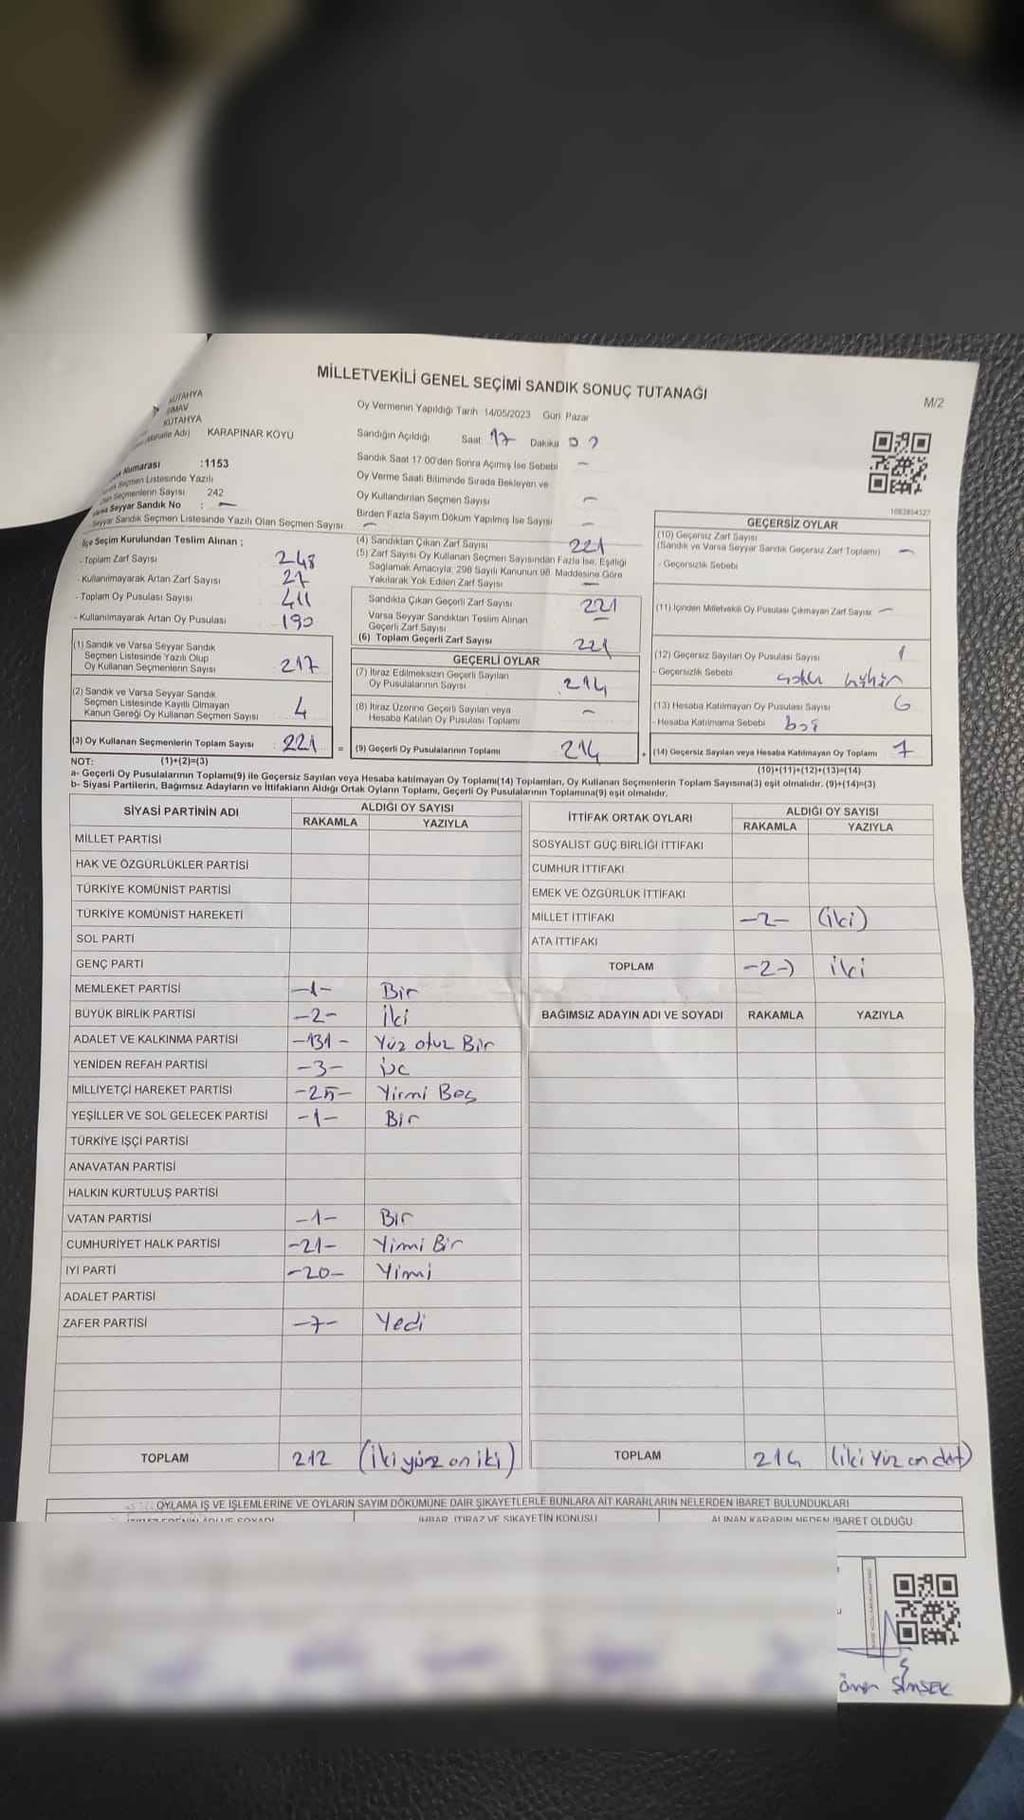 MİLLETVEKİLİ GENEL SEÇİMİ SANDIK SONUÇ TUTANAĞI
M/2
KÜTAHYA
SİMAV
KÜTAHYA
Adı) KARAPINAR KÖYÜ
Numarası :1153
Seçmen Listesinde Yazılı
Seçmenlerin Sayısı 242
Seyyar Sandık No : -
Seyyar Sandık Seçmen Listesinde Yazılı Olan Seçmen Sayısı -
Oy Vermenin Yapıldığı Tarih 14/05/2023 Gün Pazar
Sandığın Açıldığı Saat 17 Dakika
Sandık Saat 17:00'den Sonra Açımış İse Sebebi -
Oy Verme Saati Bitiminde Sırada Bekleyen ve
Oy Kullandırılan Seçmen Sayısı -
Birden Fazla Sayım Döküm Yapılmış İse Sayısı -
1083854327
İlçe Seçim Kurulundan Teslim Alınan ;
- Toplam Zarf Sayısı 248
- Kullanılmayarak Artan Zarf Sayısı 27
- Toplam Oy Pusulası Sayısı 411
- Kullanılmayarak Artan Oy Pusulası 190
(1) Sandık ve Varsa Seyyar Sandık
Seçmen Listesinde Yazılı Olup
Oy Kullanan Seçmenlerin Sayısı 217
(2) Sandık ve Varsa Seyyar Sandık
Seçmen Listesinde Kayıtlı Olmayan
Kanun Gereği Oy Kullanan Seçmen Sayısı 4
(3) Oy Kullanan Seçmenlerin Toplam Sayısı 221
(4) Sandıktan Çıkan Zarf Sayısı 221
(5) Zarf Sayısı Oy Kullanan Seçmen Sayısından Fazla İse, Eşitliği
Sağlamak Amacıyla, 298 Sayılı Kanunun 98. Maddesine Göre
Yakılarak Yok Edilen Zarf Sayısı -
Sandıkta Çıkan Geçerli Zarf Sayısı 221
Varsa Seyyar Sandıktan Teslim Alınan
Geçerli Zarf Sayısı -
(6) Toplam Geçerli Zarf Sayısı 221
GEÇERLİ OYLAR
(7) İtiraz Edilmeksizin Geçerli Sayılan
Oy Pusulalarının Sayısı 214
(8) İtiraz Üzerine Geçerli Sayılan veya
Hesaba Katılan Oy Pusulası Toplamı -
= (9) Geçerli Oy Pusulalarının Toplamı 214
GEÇERSİZ OYLAR
(10) Geçersiz Zarf Sayısı
(Sandık ve Varsa Seyyar Sandık Geçersiz Zarf Toplamı) -
- Geçersizlik Sebebi
(11) İçinden Milletvekili Oy Pusulası Çıkmayan Zarf Sayısı -
(12) Geçersiz Sayılan Oy Pusulası Sayısı 1
- Geçersizlik Sebebi
(13) Hesaba Katılmayan Oy Pusulası Sayısı 6
- Hesaba Katılmama Sebebi boş
+ (14) Geçersiz Sayılan veya Hesaba Katılmayan Oy Toplamı 7
NOT: (1)+(2)=(3)
(10)+(11)+(12)+(13)=(14)
a- Geçerli Oy Pusulalarının Toplamı(9) ile Geçersiz Sayılan veya Hesaba katılmayan Oy Toplamı(14) Toplamları, Oy Kullanan Seçmenlerin Toplam Sayısına(3) eşit olmalıdır. (9)+(14)=(3)
b- Siyasi Partilerin, Bağımsız Adayların ve İttifakların Aldığı Ortak Oyların Toplamı, Geçerli Oy Pusulalarının Toplamına(9) eşit olmalıdır.
SİYASİ PARTİNİN ADI
ALDIĞI OY SAYISI
RAKAMLA YAZIYLA
MİLLET PARTİSİ
HAK VE ÖZGÜRLÜKLER PARTİSİ
TÜRKİYE KOMÜNİST PARTİSİ
TÜRKİYE KOMÜNİST HAREKETİ
SOL PARTİ
GENÇ PARTİ
MEMLEKET PARTİSİ -1- Bir
BÜYÜK BİRLİK PARTİSİ -2- İki
ADALET VE KALKINMA PARTİSİ -131- Yüz otuz Bir
YENİDEN REFAH PARTİSİ -3- üç
MİLLİYETÇİ HAREKET PARTİSİ -25- Yirmi Beş
YEŞİLLER VE SOL GELECEK PARTİSİ -1- Bir
TÜRKİYE İŞÇİ PARTİSİ
ANAVATAN PARTİSİ
HALKIN KURTULUŞ PARTİSİ
VATAN PARTİSİ -1- Bir
CUMHURİYET HALK PARTİSİ -21- Yirmi Bir
İYİ PARTİ -20- Yirmi
ADALET PARTİSİ
ZAFER PARTİSİ -7- Yedi
TOPLAM 212 (İki yüz on iki)
İTTİFAK ORTAK OYLARI
ALDIĞI OY SAYISI
RAKAMLA YAZIYLA
SOSYALİST GÜÇ BİRLİĞİ İTTİFAKI
CUMHUR İTTİFAKI
EMEK VE ÖZGÜRLÜK İTTİFAKI
MİLLET İTTİFAKI -2- (iki)
ATA İTTİFAKI
TOPLAM -2-) iki
BAĞIMSIZ ADAYIN ADI VE SOYADI RAKAMLA YAZIYLA
TOPLAM 214 (iki Yüz on dört)
OYLAMA İŞ VE İŞLEMLERİNE VE OYLARIN SAYIM DÖKÜMÜNE DAİR ŞİKAYETLERLE BUNLARA AİT KARARLARIN NELERDEN İBARET BULUNDUKLARI
İHBAR, İTİRAZ VE ŞİKAYETİN KONUSU
ALINAN KARARIN NEDEN İBARET OLDUĞU
Ömer ŞİMŞEK